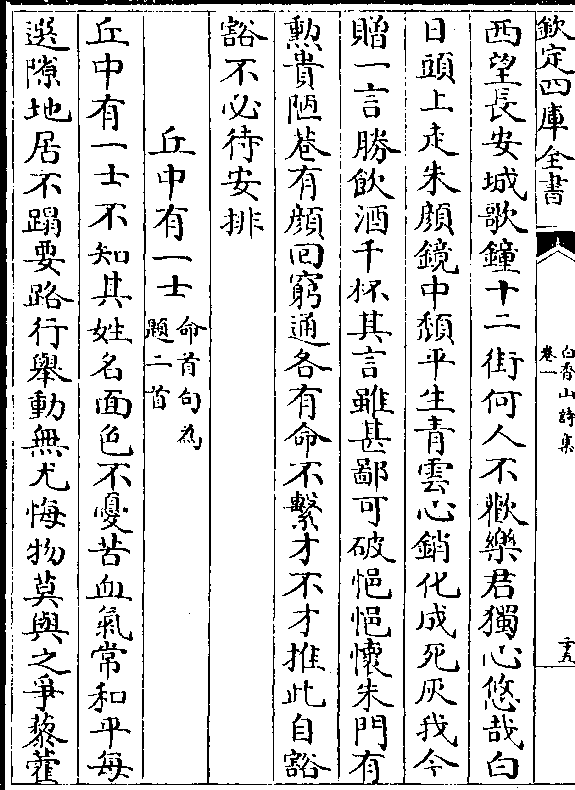 欽定四庫全書
白香山詩集
卷一
二十九
西望長安城歌鐘十二街何人不歡樂君獨心悠哉白
日頭上走朱顔鏡中頽平生青雲心銷化成死灰我今
贈一言勝飲酒千杯其言雖甚鄙可破悒悒懷朱門有
勲貴陋巷有顔回窮通各有命不繫才不才推此自豁
豁不必待安排
丘中有一士命首句為
題二首
丘中有一士不知其姓名面色不憂苦血氣常和平每
選隙地居不蹋要路行舉動無尤悔物莫與之爭藜藿